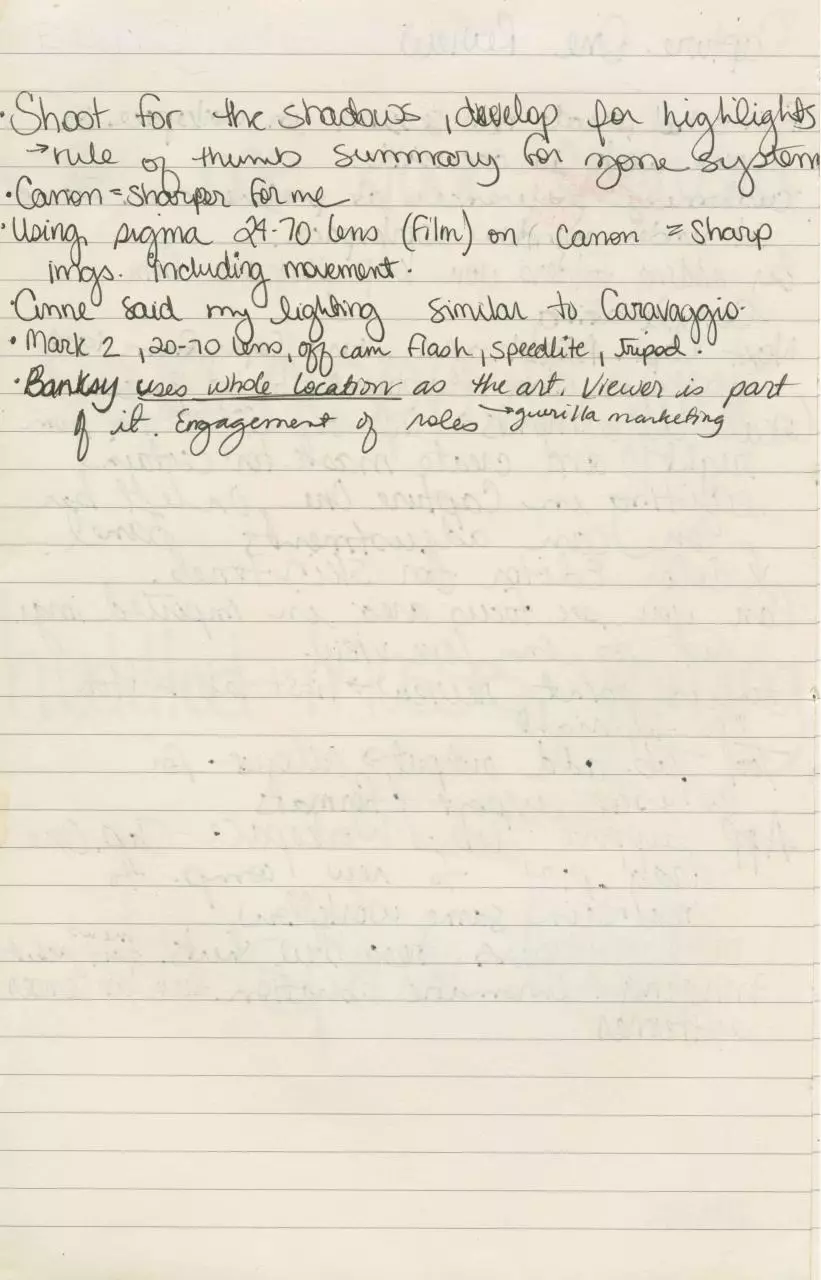 ·Shoot for the shadows, develop for highlights
→rule of thumb summary for zone system
·Canon = sharper for me
·Using sigma 24-70 lens (film) on Canon = Sharp
imgs. Including movement.
·Anne said my lighting similar to Caravaggio.
·Mark 2, 20-70 lens, off cam flash, speedlite, Tripod.
·Banksy uses whole location as the art. Viewer is part
of it. Engagement of roles →guerilla marketing